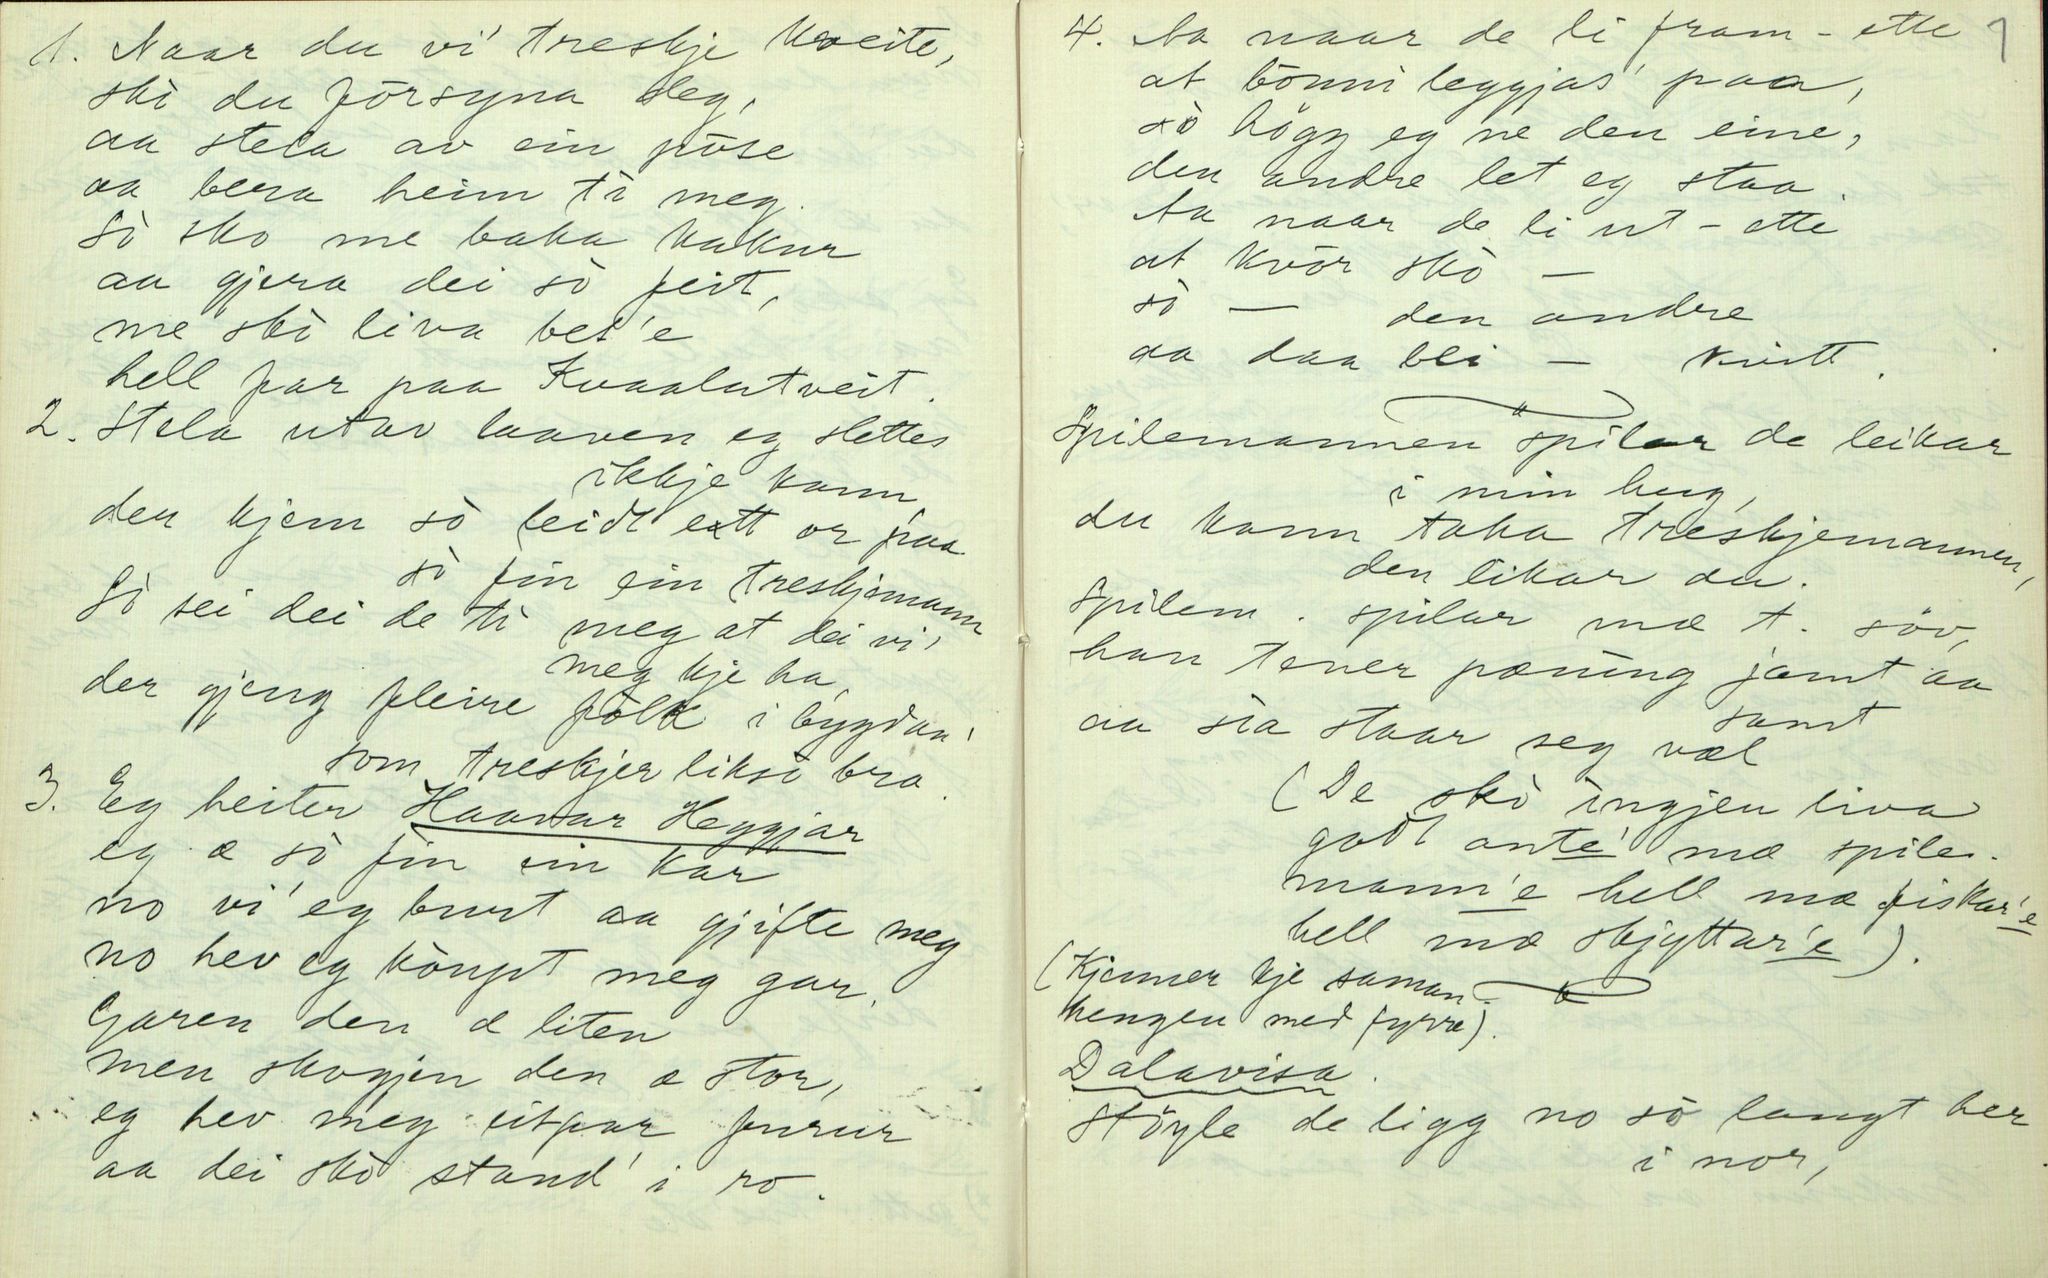 1. Naar du vi' treskje kveite,
skò du försyna deg,
aa stela av ein pöse
aa bera heim ti meg.
Sò sko me baka kakur
aa gjera dei sò feit,
me skò liva bet'e
hell far paa Kvaalutveit.
2. Stela utav laaven eg slettes
ikkje kann,
der kjem sò leidt ett or paa
sò fin ein treskjemann
Sò sei dei de ti meg at dei vi'
meg kje ha,
der gjeng fleire folk i bygdan'
som treskjer liksò bra.
3. Eg heiter Haavar Heggjar
eg æ sò fin ein kar
no vi' eg burt aa gjifte meg
no hev eg kòupt meg gar.
Garen den æ liten
men skogjen den æ stor,
eg hev meg eitpar furur
aa dei skò stand' i ro.
4. Aa naar de li fram-ette 7
at bönni leggjas' paa,
sò högg eg ne den eine,
den andre let eg staa.
Aa naar de li ut-etti
at kvör skò —
sò — den andre
aa daa bli — kvitt.
Spilemannen spilar de leikar
i min hug,
du kann taka treskjemannen,
den likar du.
Spilem. spilar mæ t. söv,
han tener pæning jamt aa
samt
aa sia staar seg væl
(De skò ingjen liva
godt anté mæ spile-
mann'e hell mæ fiskar'e
hell mæ skjyttar'e).
(Kjenner kje saman-
hengen med fyrre).
Dalavisa.
Stöyle de ligg no sò langt her
i nor,